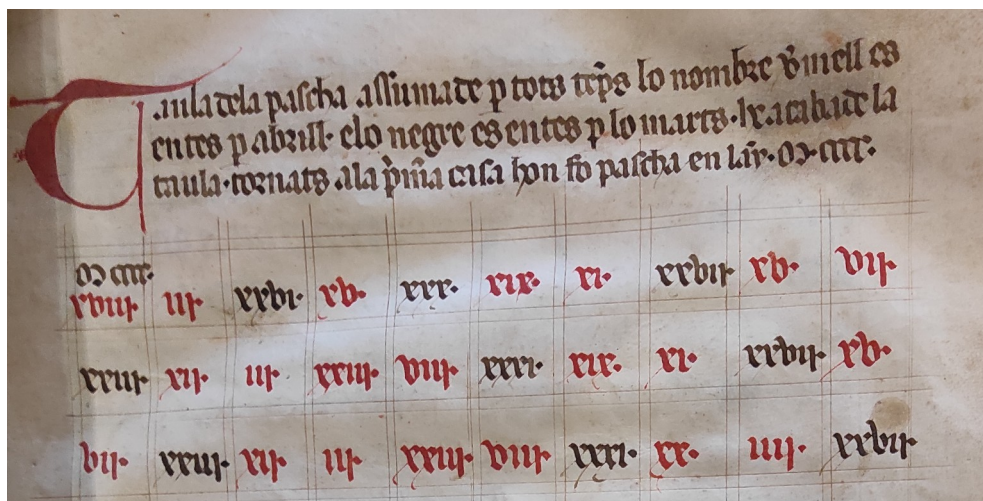 Taula dela pascha assumade p tots tēps lo nombre v̄mell es
entes p abrill· elo negre es entes p lo marts· he acabade la
taula· tornats ala p̄mia casa hon fo pascha en lāy· M cccc·
M cccc·
xviij· iij· xxvi· xv· xxx· xix· xi· xxvij· xv· vij·
xxiij· xij· iij· xxiij· viij· xxxi· xix· xi· xxvij· xv·
vij· xxiij· xij· iij· xxiij· viij· xxxi· xx· iiij· xxvij·